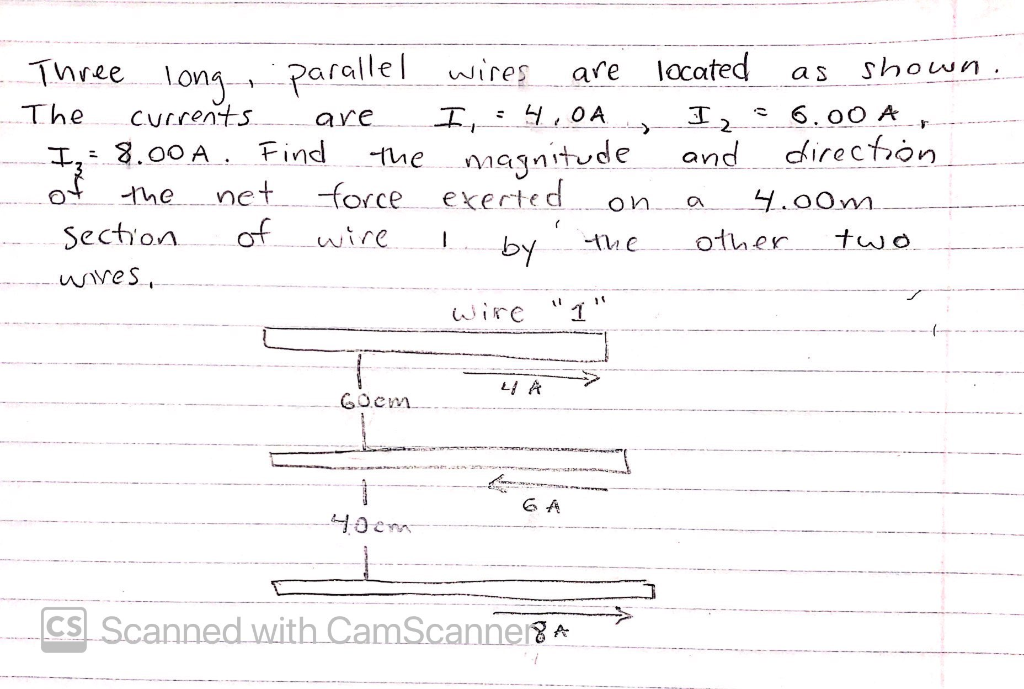 Three long, parallel wires are located as shown.
The currents are I₁ = 4.0A, I₂ = 6.00 A,
I₃ = 8.00 A. Find the magnitude and direction
of the net force exerted on a 4.00m
section of wire 1 by the other two
wires.
wire "1"
4 A
60cm
6 A
40cm
8 A
CS Scanned with CamScanner